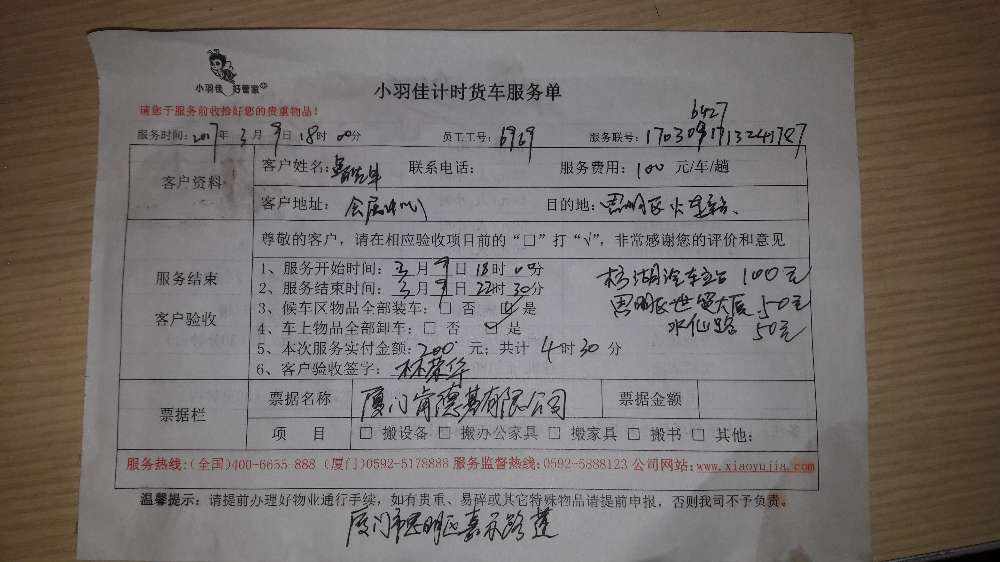 小羽佳 好管家
小羽佳计时货车服务单
请您于服务前收拾好您的贵重物品!
6427
服务时间:2017年 3月 9日 18时 00分 员工工号: 6969 服务联号: 17030917132417
客户资料
客户姓名: 联系电话: 服务费用: 100 元/车/趟
客户地址: 会展中心 目的地: 思明区火车站
服务结束
客户验收
尊敬的客户,请在相应验收项目前的“□”打“√”,非常感谢您的评价和意见
1、服务开始时间: 3月 9日 18时 00分
2、服务结束时间: 3月 9日 22时 30分
3、候车区物品全部装车: □ 否 □ 是
4、车上物品全部卸车: □ 否 ☑ 是
5、本次服务实付金额: 200 元; 共计 4时 30分
6、客户验收签字: 林荣华
湖汽车站 100元
思明区世贸大厦 50元
水仙路 50元
票据栏
票据名称 厦门肯德基有限公司 票据金额
项 目 □ 搬设备 □ 搬办公家具 □ 搬家具 □ 搬书 □ 其他:
服务热线:(全国)400-6655-888 (厦门)0592-5178888 服务监督热线:0592-5888123 公司网站:www.xiaoyujia.com
温馨提示: 请提前办理好物业通行手续,如有贵重、易碎或其它特殊物品请提前申报,否则我司不予负责。
厦门市思明区嘉禾路